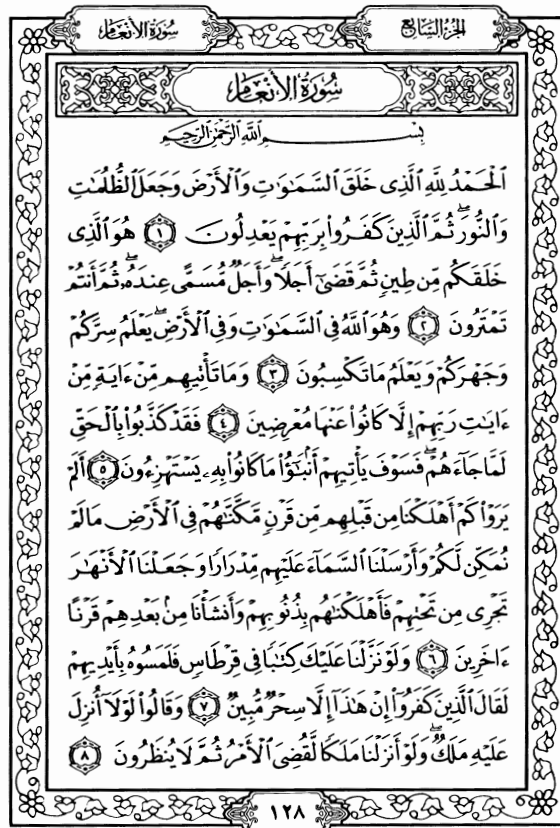 سُورَةُ الأَنْعَامِ
الجُزءُ السَّابِعُ
سُورَةُ الأَنْعَامِ
بِسْمِ اللَّهِ الرَّحْمَٰنِ الرَّحِيمِ
الْحَمْدُ لِلَّهِ الَّذِي خَلَقَ السَّمَاوَاتِ وَالْأَرْضَ وَجَعَلَ الظُّلُمَاتِ
وَالنُّورَ ۖ ثُمَّ الَّذِينَ كَفَرُوا بِرَبِّهِمْ يَعْدِلُونَ ١ هُوَ الَّذِي
خَلَقَكُم مِّن طِينٍ ثُمَّ قَضَىٰ أَجَلًا ۖ وَأَجَلٌ مُّسَمًّى عِندَهُ ۖ ثُمَّ أَنتُمْ
تَمْتَرُونَ ٢ وَهُوَ اللَّهُ فِي السَّمَاوَاتِ وَفِي الْأَرْضِ ۖ يَعْلَمُ سِرَّكُمْ
وَجَهْرَكُمْ وَيَعْلَمُ مَا تَكْسِبُونَ ٣ وَمَا تَأْتِيهِم مِّنْ ءَايَةٍ مِّنْ
ءَايَاتِ رَبِّهِمْ إِلَّا كَانُوا عَنْهَا مُعْرِضِينَ ٤ فَقَدْ كَذَّبُوا بِالْحَقِّ
لَمَّا جَاءَهُمْ ۖ فَسَوْفَ يَأْتِيهِمْ أَنبَاؤُا مَا كَانُوا بِهِ يَسْتَهْزِءُونَ ٥ أَلَمْ
يَرَوْا كَمْ أَهْلَكْنَا مِن قَبْلِهِم مِّن قَرْنٍ مَّكَّنَّاهُمْ فِي الْأَرْضِ مَا لَمْ
نُمَكِّن لَّكُمْ وَأَرْسَلْنَا السَّمَاءَ عَلَيْهِم مِّدْرَارًا وَجَعَلْنَا الْأَنْهَارَ
تَجْرِي مِن تَحْتِهِمْ فَأَهْلَكْنَاهُم بِذُنُوبِهِمْ وَأَنشَأْنَا مِن بَعْدِهِمْ قَرْنًا
ءَاخَرِينَ ٦ وَلَوْ نَزَّلْنَا عَلَيْكَ كِتَابًا فِي قِرْطَاسٍ فَلَمَسُوهُ بِأَيْدِيهِمْ
لَقَالَ الَّذِينَ كَفَرُوا إِنْ هَٰذَا إِلَّا سِحْرٌ مُّبِينٌ ٧ وَقَالُوا لَوْلَا أُنزِلَ
عَلَيْهِ مَلَكٌ ۖ وَلَوْ أَنزَلْنَا مَلَكًا لَّقُضِيَ الْأَمْرُ ثُمَّ لَا يُنظَرُونَ ٨
١٢٨